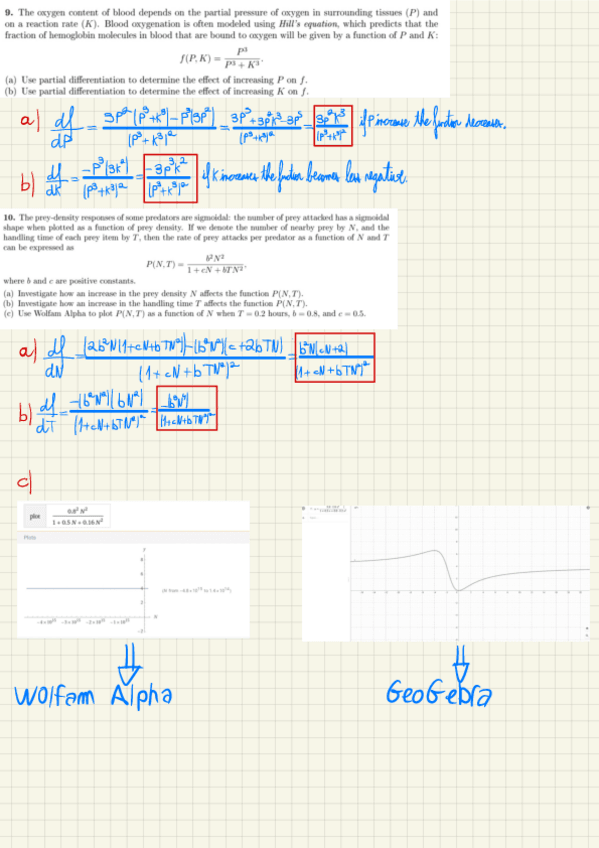 9. The oxygen content of blood depends on the partial pressure of oxygen in surrounding tissues (P) and
on a reaction rate (K). Blood oxygenation is often modeled using Hill's equation, which predicts that the
fraction of hemoglobin molecules in blood that are bound to oxygen will be given by a function of P and K:
f(P, K) = P³ / (P³ + K³).
(a) Use partial differentiation to determine the effect of increasing P on f.
(b) Use partial differentiation to determine the effect of increasing K on f.
a) df/dP = (3P²(P³+K³) − P³(3P²)) / (P³+K³)² = (3P⁵+3P²K³−3P⁵) / (P³+K³)² = 3P²K³ / (P³+K³)² if P increase the function decreases.
b) df/dK = −P³(3K²) / (P³+K³)² = −3P³K² / (P³+K³)² if K increases the function becomes less negative.
10. The prey-density responses of some predators are sigmoidal: the number of prey attacked has a sigmoidal
shape when plotted as a function of prey density. If we denote the number of nearby prey by N, and the
handling time of each prey item by T, then the rate of prey attacks per predator as a function of N and T
can be expressed as
P(N, T) = b²N² / (1 + cN + bTN²),
where b and c are positive constants.
(a) Investigate how an increase in the prey density N affects the function P(N, T).
(b) Investigate how an increase in the handling time T affects the function P(N, T).
(c) Use Wolfam Alpha to plot P(N, T) as a function of N when T = 0.2 hours, b = 0.8, and c = 0.5.
a) df/dN = ((2b²N)(1+cN+bTN²) − (b²N²)(c+2bTN)) / (1+cN+bTN²)² = b²N(cN+2) / (1+cN+bTN²)²
b) df/dT = −(b²N²)(bN²) / (1+cN+bTN²)² = −b³N⁴ / (1+cN+bTN²)²
c)
plot 0.8² N² / (1 + 0.5 N + 0.16 N²)
Plots
Wolfam Alpha
GeoGebra